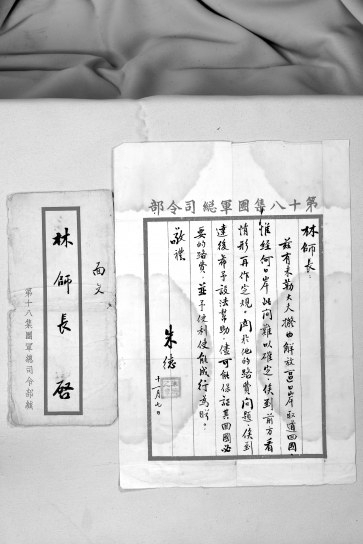 第十八集團軍總司令部
林師長：
茲有米勒大夫擬由解放區口岸取道回國，
惟經何口岸此间難以確定，俟到前方看
情形再作定規。関於他的路費问題，俟到
達後希予設法幫助，儘可能保証其回國必
要的路費，並予便利使能成行為盼。
敬禮
朱德
十一月七日
面交
林師長 啓
第十八集團軍總司令部緘